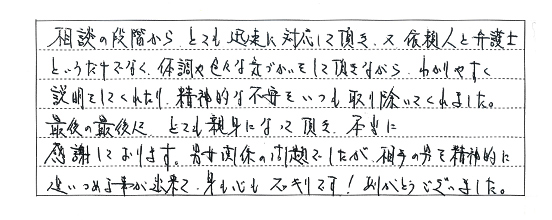 相談の段階から、とても迅速に対応して頂き、又 依頼人と弁護士
というだけでなく、体調や色々な気づかいをして頂きながら、わかりやすく
説明をしてくれたり、精神的な不安をいつも取り除いてくれました。
最後の最後まで とても親身になって頂き、本当に
感謝しております。男女関係の問題でしたが、相手の男を精神的に
追いつめる事が出来て、身も心もスッキリです！ありがとうございました。